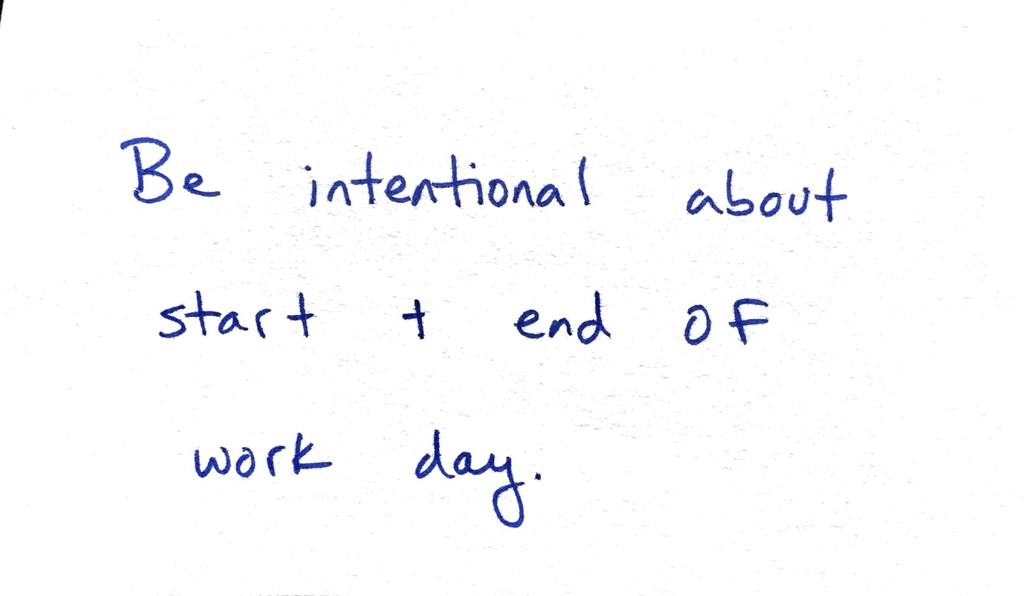 Be intentional about
start + end of
work day.